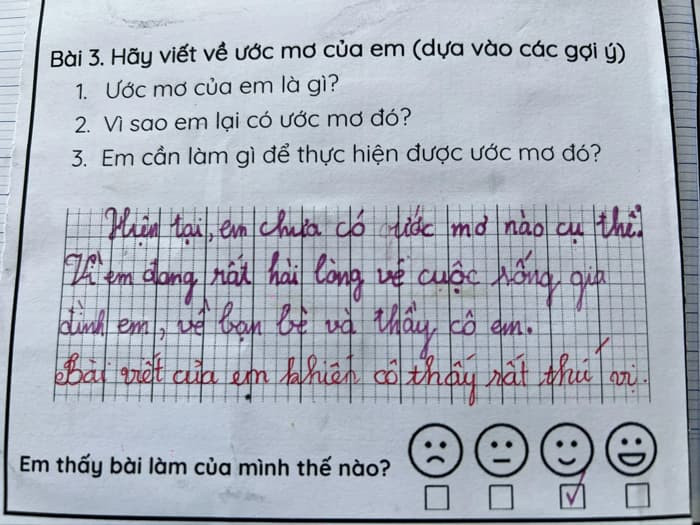 Bài 3. Hãy viết về ước mơ của em (dựa vào các gợi ý)
1. Ước mơ của em là gì?
2. Vì sao em lại có ước mơ đó?
3. Em cần làm gì để thực hiện được ước mơ đó?
Hiện tại, em chưa có ước mơ nào cụ thể.
Vì em đang rất hài lòng về cuộc sống, gia
đình em, về bạn bè và thầy, cô em.
Bài viết của em khiến cô thấy rất thú vị.
Em thấy bài làm của mình thế nào?